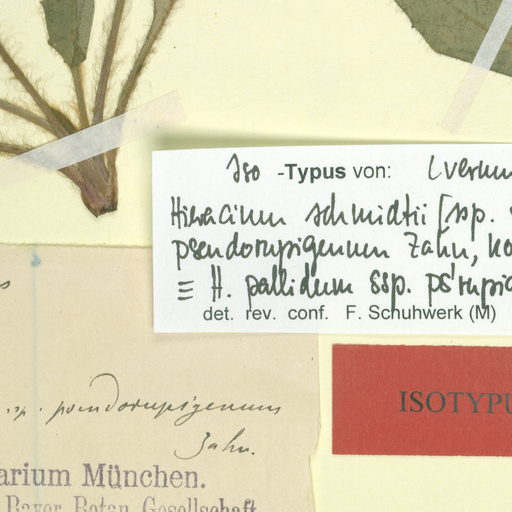 Iso -Typus von: (verum
Hieracium schmidtii [ssp.
pseudorupigenum Zahn, no
≡ H. pallidum ssp. ps'rupig
det. rev. conf. F. Schuhwerk (M)
ISOTYPU
ssp. pseudorupigenum
Zahn.
arium München.
Bayer. Botan. Gesellschaft